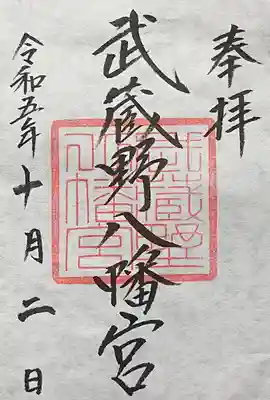 奉拝
武蔵野八幡宮
武蔵野八幡宮
令和五年十月二日